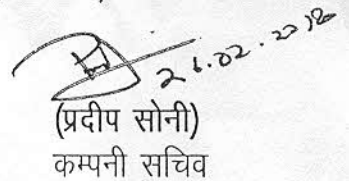 26.02.2018
(प्रदीप सोनी)
कम्पनी सचिव